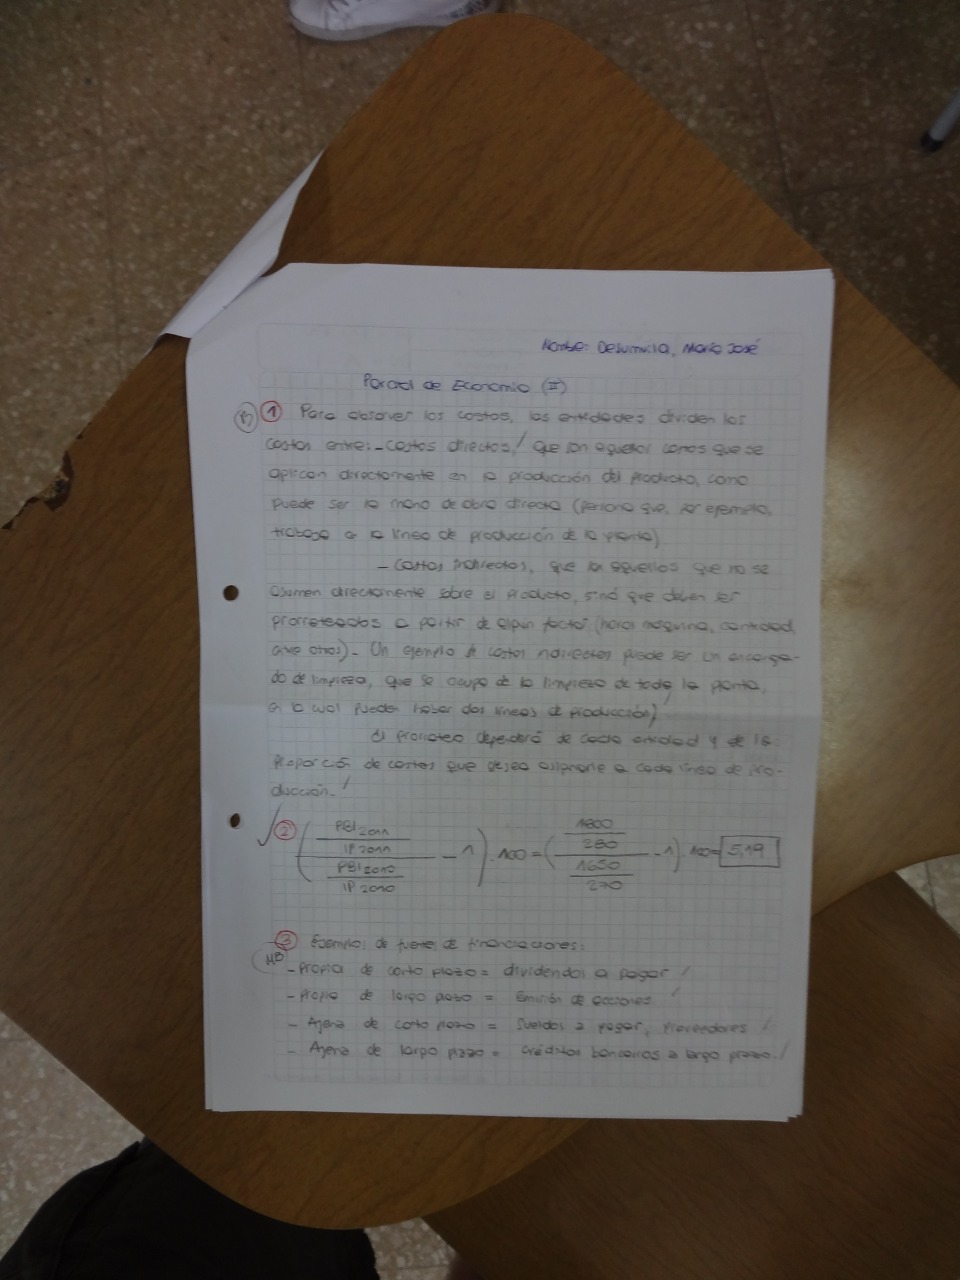 Nombre: María José
Parcial de Economía (II)
B 1 Para absorver los costos, las entidades dividen los
costos entre: - costos directos, que son aquellos que se
aplican directamente en la producción del producto, como
puede ser la mano de obra directa (persona que, por ejemplo,
trabaja en la línea de producción de la planta)
- Costos indirectos, que son aquellos que no se
asumen directamente sobre el producto, sinó que deben ser
prorrateados a partir de algún factor (horas máquina, cantidad,
otros). Un ejemplo de costos indirectos puede ser un encarga-
do de limpieza, que se ocupa de la limpieza de toda la planta,
en la cual pueden haber dos líneas de producción)
El prorrateo dependerá de cada entidad y de la
proporción de costos que desea asignarle a cada línea de pro-
ducción.
2 (PBI2011/IP2011 / PBI2010/IP2010 - 1) . 100 = (1800/280 / 1650/270 - 1) . 100 = 5,19
3 Ejemplos de fuentes de financiaciones:
MB
- Propia de corto plazo = dividendos a pagar
- Propia de largo plazo = Emisión de acciones
- Ajena de corto plazo = Sueldos a pagar, Proveedores
- Ajena de largo plazo = Créditos bancarios a largo plazo.